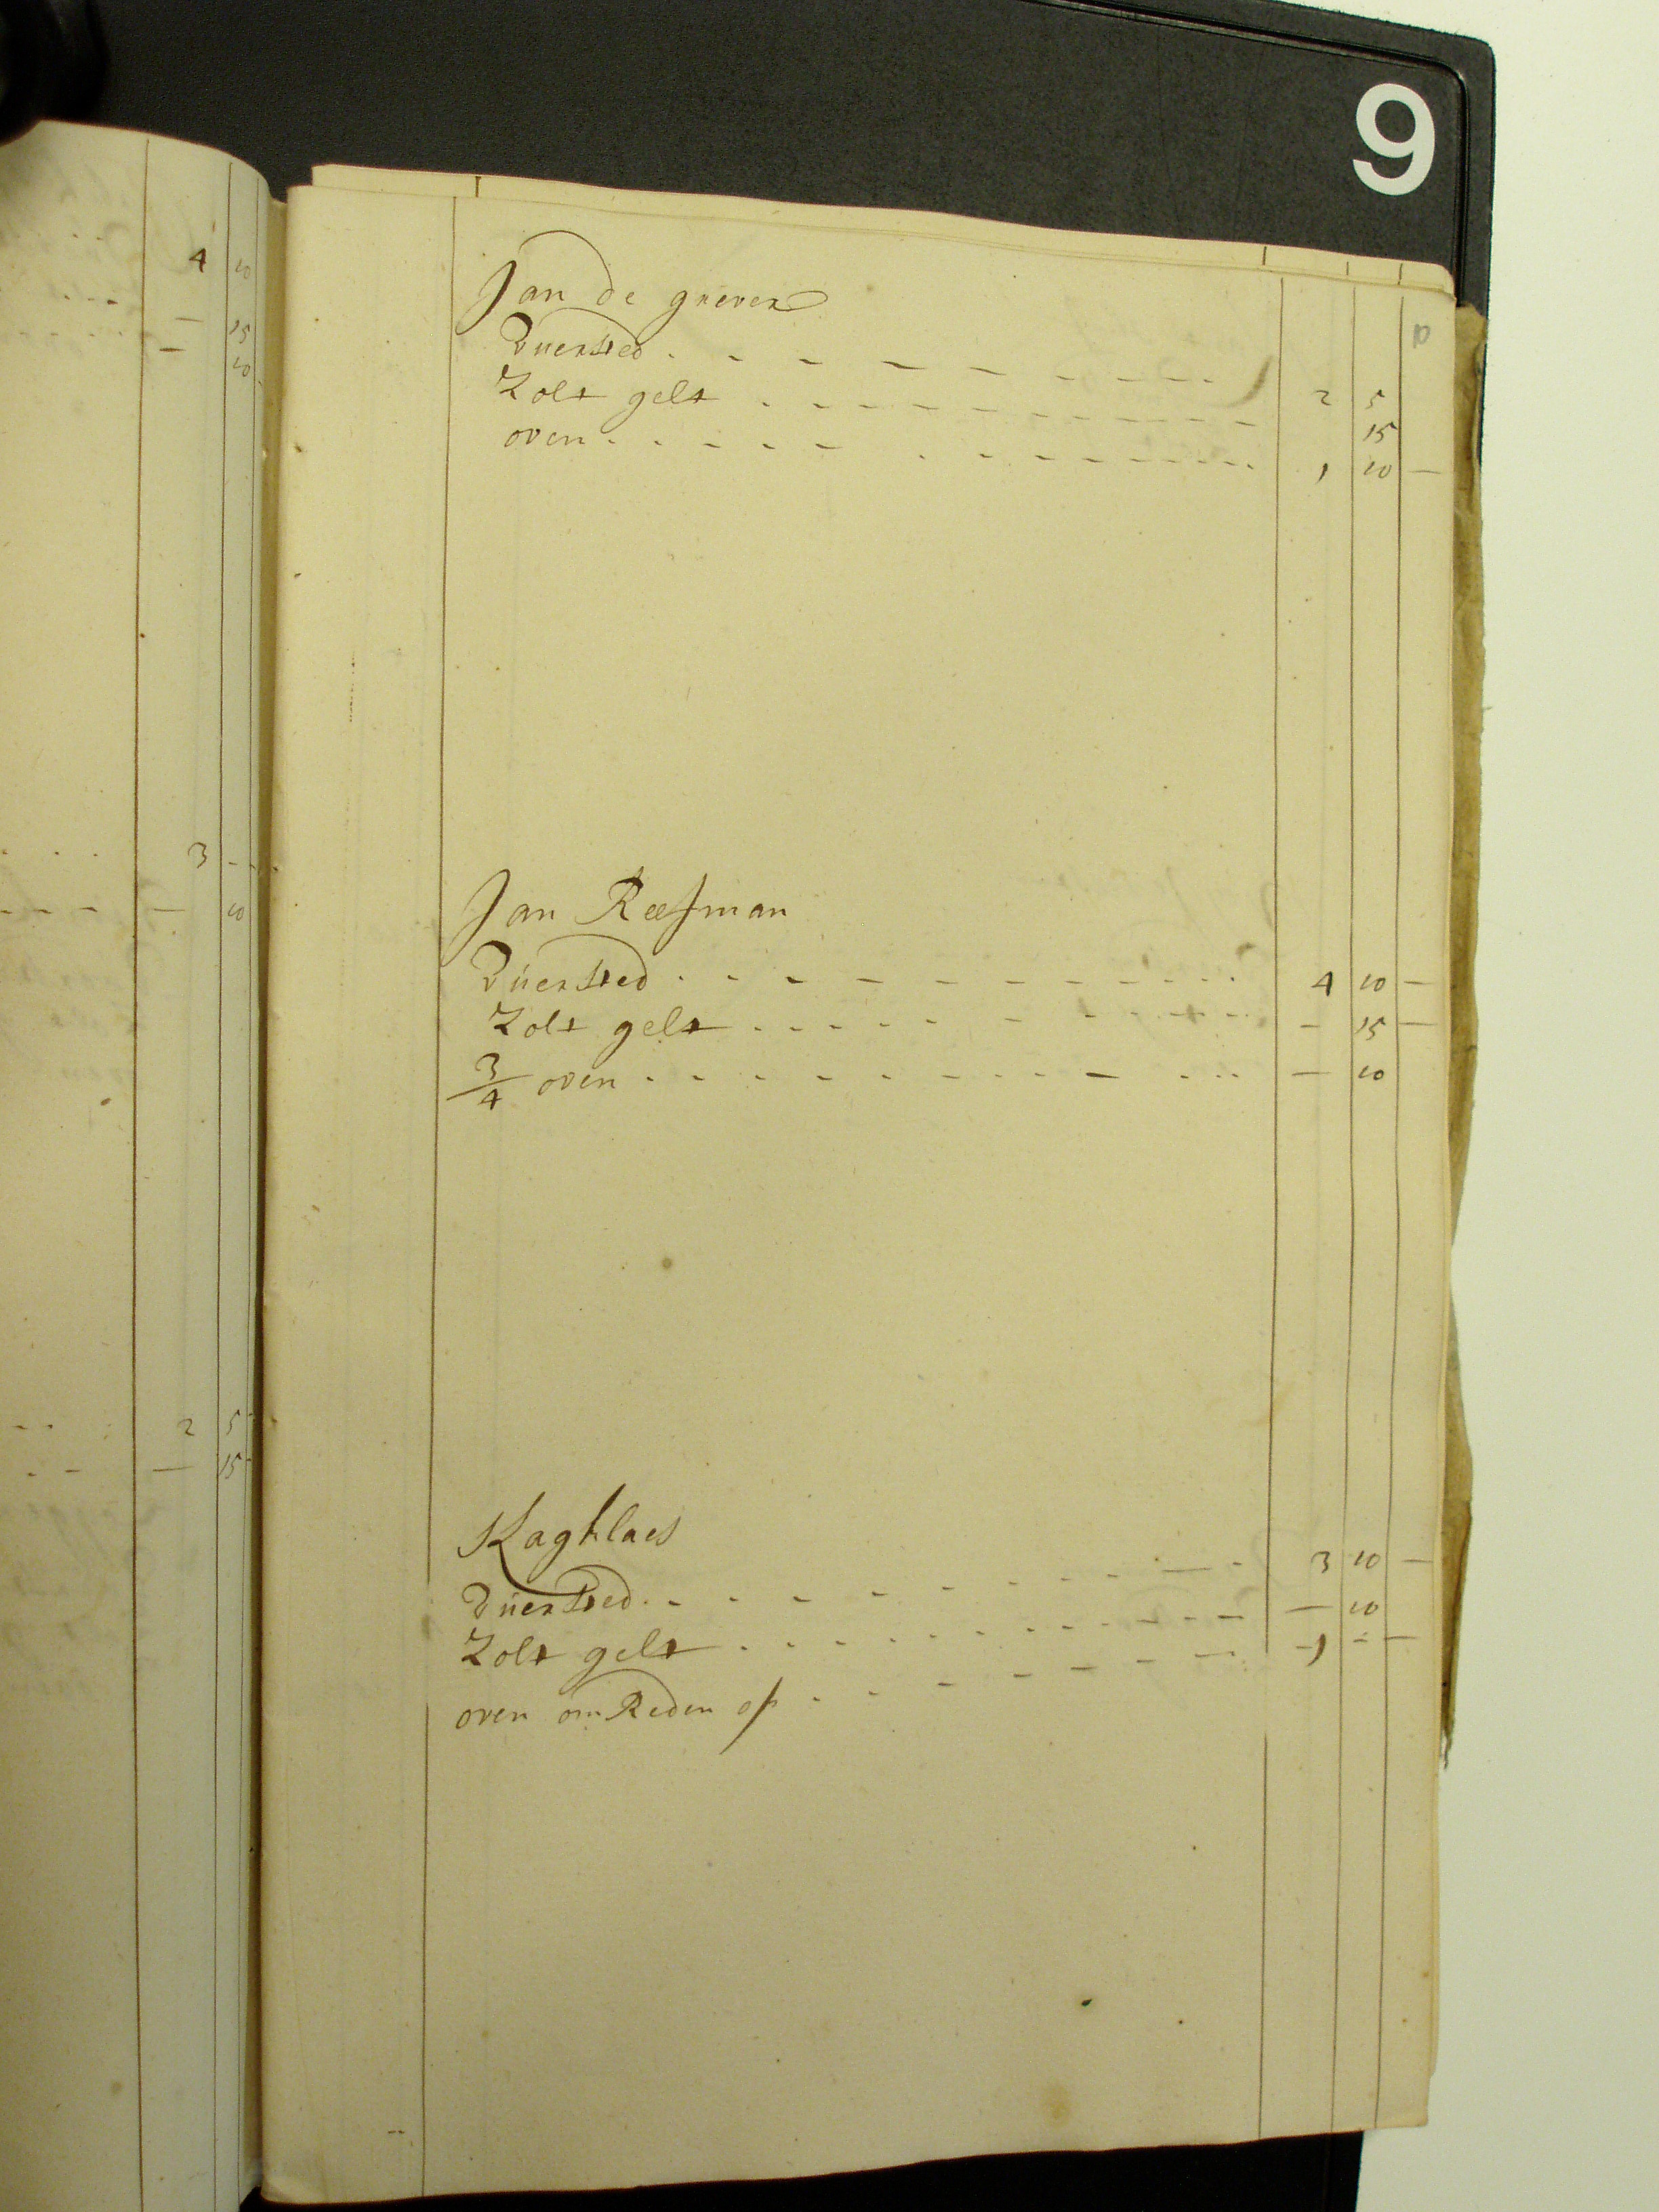 9
10
4 10
— 15
— 10
3 - -
— 10
2 5
— 15
Jan de greven
Duersted . - - - - - - - - - 2 5
Zolt gelt . - - - - - - - - - 15
oven . - - - - - - - - - 1 10 —
Jan Reefman
Düersted . - - - - - - - - - 4 10 —
Zolt gelt . - - - - - - - - - — 15 —
3/4 oven . - - - - - - - - - — 10
Kagklaes
Düersted . - - - - - - - - - 3 10 —
Zolt gelt . - - - - - - - - - — 10
oven om Reden of . - - - - - - - 1 - —